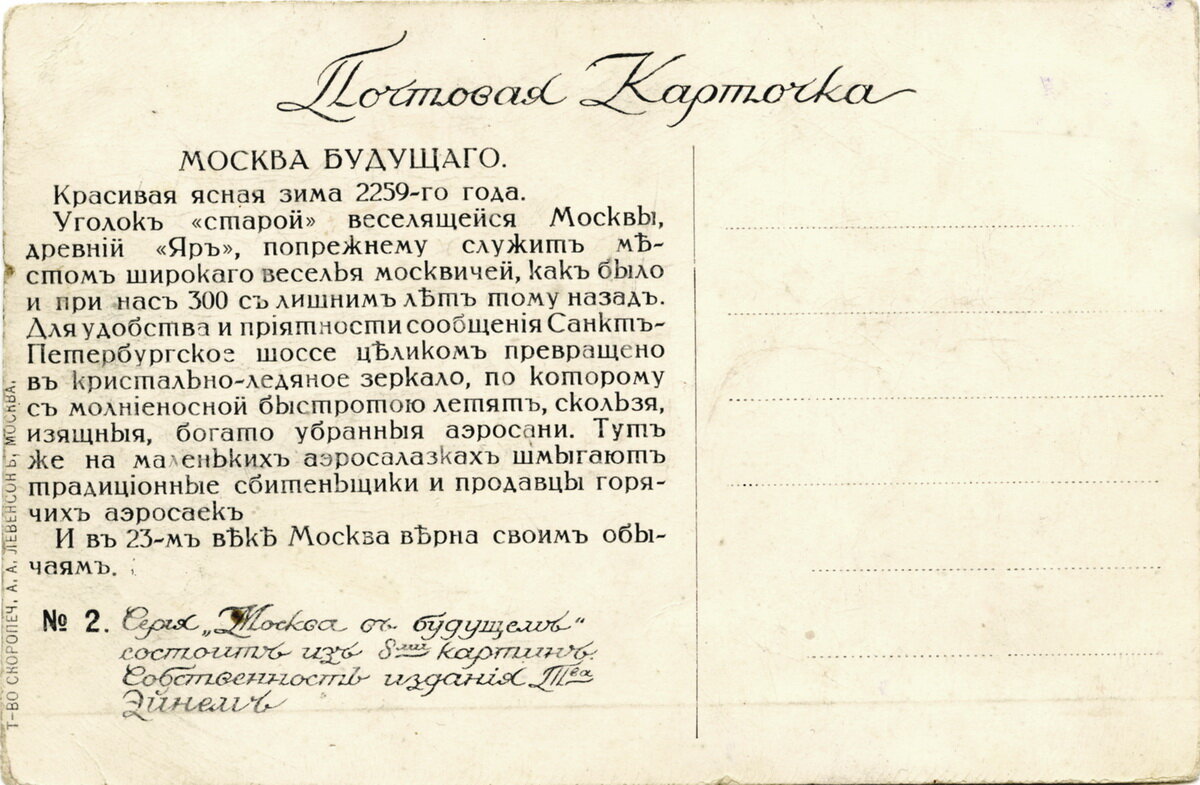 Почтовая Карточка
МОСКВА БУДУЩАГО.
Красивая ясная зима 2259-го года.
Уголокъ «старой» веселящейся Москвы,
древній «Яръ», попрежнему служитъ мѣ-
стомъ широкаго веселья москвичей, какъ было
и при насъ 300 съ лишнимъ лѣтъ тому назадъ.
Для удобства и пріятности сообщенія Санктъ-
Петербургское шоссе цѣликомъ превращено
въ кристально-ледяное зеркало, по которому
съ молніеносной быстротою летятъ, скользя,
изящныя, богато убранныя аэросани. Тутъ
же на маленькихъ аэросалазкахъ шмыгаютъ
традиціонные сбитеньщики и продавцы горя-
чихъ аэросаекъ
И въ 23-мъ вѣкѣ Москва вѣрна своимъ обы-
чаямъ.
№ 2. Серія „Москва въ будущемъ“
состоитъ изъ 8ми картинъ.
Собственность изданія Тва
Эйнемъ
Т-ВО СКОРОПЕЧ. А. А. ЛЕВЕНСОНЪ, МОСКВА.